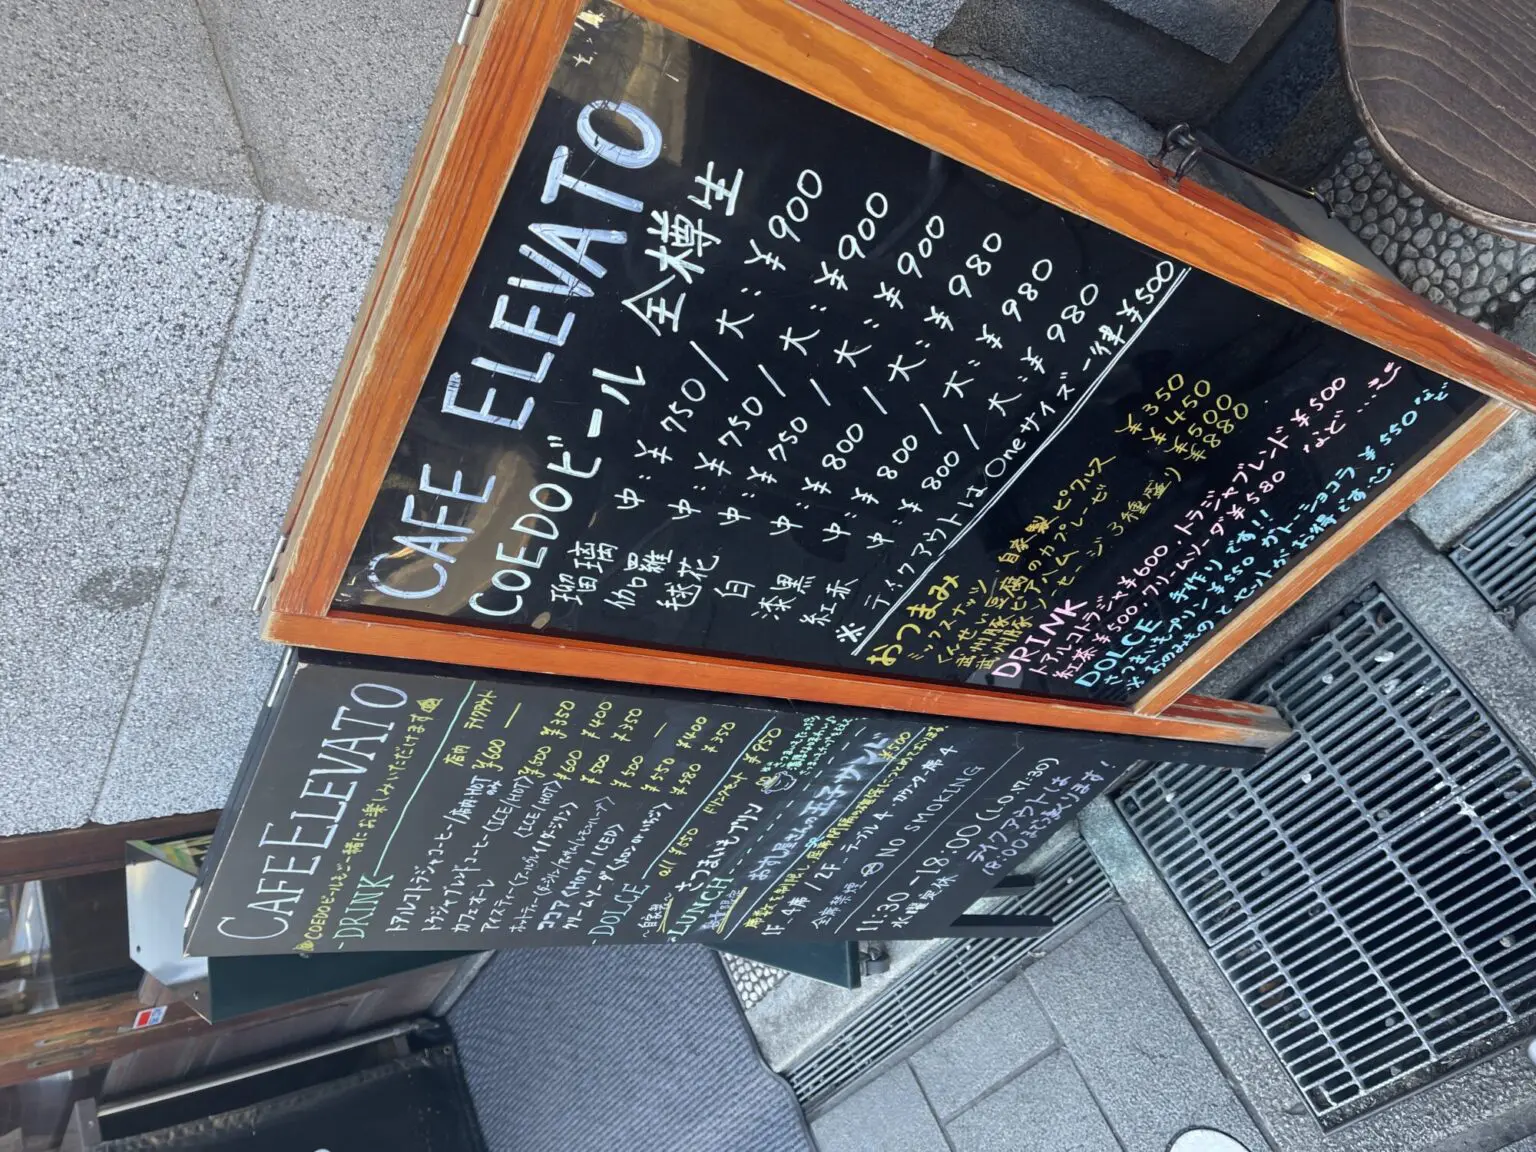 CAFE ELEVATO
COEDOビール 全樽生
瑠璃 中:¥750/大:¥900
伽羅 中:¥750/大:¥900
毬花 中:¥750/大:¥900
白 中:¥800/大:¥980
漆黒 中:¥800/大:¥980
紅赤 中:¥800/大:¥980
※テイクアウトはOneサイズ一律¥500
おつまみ
ミックスナッツ ¥350
自家製ピクルス ¥450
くんせい豆腐のカプレーゼ ¥500
武州豚ビアハム
武州豚ソーセージ3種盛り ¥880
DRINK
トアルコトラジャ¥600、トラジャブレンド¥500
紅茶¥500、クリームソーダ¥580 など
DOLCE 手作りです!!
さつまいもプリン¥550 ガトーショコラ¥550など
※おのみものとセットがお得です
CAFE ELEVATO
COEDOビールもご一緒にお楽しみいただけます
-DRINK-
店内 テイクアウト
トアルコトラジャコーヒー/席料HOTのみ ¥600 —
トラジャブレンドコーヒー(ICE/HOT) ¥500 ¥350
カフェオーレ (ICE/HOT) ¥600 ¥400
アイスティー(アールグレイ/ダージリン) ¥500 ¥350
ホットティー ¥500 —
ココア<HOT/ICED> ¥550 ¥400
クリームソーダ(メロン or いちご) ¥580 ¥350
-DOLCE-
~自家製~ all ¥550 ドリンクセット ¥950
さつまいもプリン
-LUNCH-
数量限定
お札屋さんの玉子サンド ¥500
1F 4席/2F テーブル4 カウンター席4
全席禁煙 NO SMOKING
11:30-18:00(L.O 17:30)
水曜定休
テイクアウトは
18:00まで承ります!